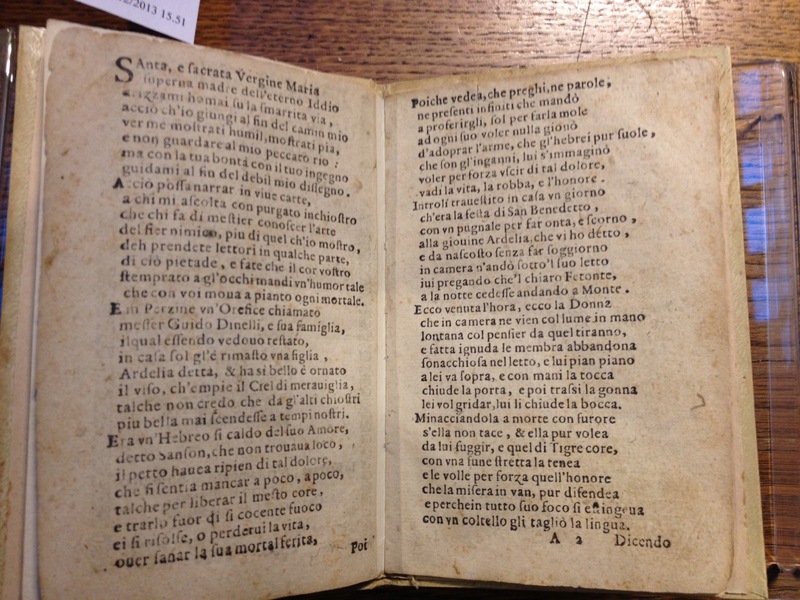 02/2013 15.51
SAnta, e sacrata Vergine Maria
superna madre dell'eterno Iddio
drizzami homai su la smarrita via,
acciò ch'io giungi al fin del camin mio
ver me mostrati humil, mostrati pia,
e non guardare al mio peccato rio:
ma con la tua bontà con il tuo ingegno
guidami al fin del debil mio dissegno.
Acciò possa narrar in viue carte,
a chi mi ascolta con purgato inchiostro
che chi fa di mestier conoscer l'arte
del fier nimico, piu di quel ch'io mostro,
deh prendete lettori in qualche parte,
di ciò pietade, e fate che il cor vostro
stemprato a gl'occhi mandi vn'humor tale
che con voi moua a pianto ogni mortale.
E in Perzine vn'Orefice chiamato
messer Guido Dinelli, e sua famiglia,
il qual essendo vedouo restato,
in casa sol gl'è rimasto vna figlia,
Ardelia detta, & ha sì bello e ornato
il viso, ch'empie il Ciel di merauiglia,
talche non credo che da gl'alti chiostri
piu bella mai scendesse a tempi nostri.
Era vn'Hebreo si caldo del suo Amore,
detto Sanson, che non trouaua loco,
il petto hauea ripien di tal dolore,
che si sentia mancar a poco, a poco,
talche per liberar il mesto core,
e trarlo fuor di si cocente fuoco
ei si risolse, o perderui la vita,
ouer sanar la sua mortal ferita,
Poi
Poiche vedea, che preghi, ne parole,
ne presenti infiniti che mandò
a proferirgli, sol per farla mole
ad ogni suo voler nulla giouò
d'adoprar l'arme, che gl'hebrei pur suole,
che son gl'inganni, lui s'immaginò
voler per forza vscir di tal dolore,
vadi la vita, la robba, e l'honore.
Introsi trauestito in casa vn giorno
ch'era la festa di San Benedetto,
con vn pugnale per far onta, e scorno,
alla giouine Ardelia, che vi ho detto,
e da nascosto senza far soggiorno
in camera n'andò sotto'l suo letto
iui pregando che'l chiaro Fetonte,
a la notte cedesse andando a Monte.
Ecco venuta l'hora, ecco la Donna
che in camera ne vien col lume in mano
lontana col pensier da quel tiranno,
e fatta ignuda le membra abbandona
sonacchiosa nel letto, e lui pian piano
a lei va sopra, e con mani la tocca
chiude la porta, e poi trassi la gonna
lei vol gridar, lui li chiude la bocca.
Minacciandola a morte con furore
s'ella non tace, & ella pur volea
da lui fuggir, e quel di Tigre core,
con vna fune stretta la tenea
e le volle per forza quell'honore
che la misera in van, pur difendea
e perche in tutto suo foco si estingeua
con vn coltello gli tagliò la lingua.
A 2 Dicendo